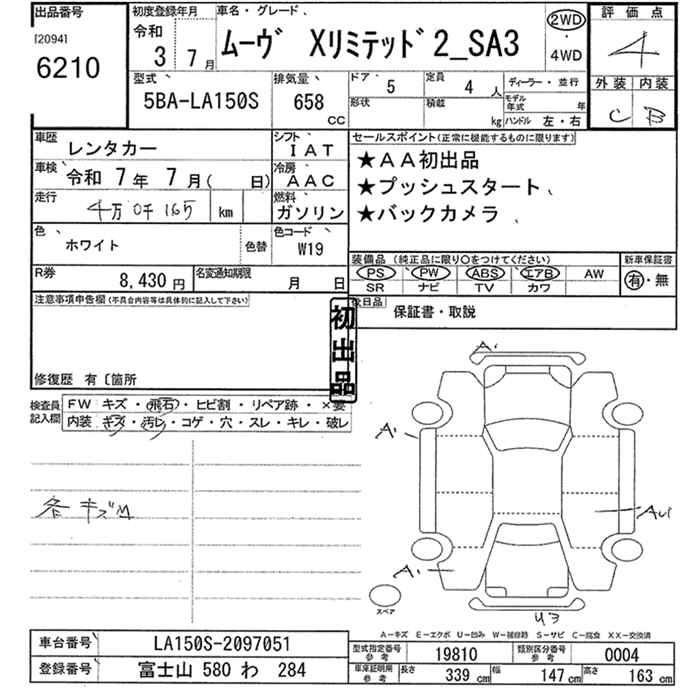 出品番号
[2094]
6210
初度登録年月
令和
3年 7月
車名・グレード
ムーヴ Xリミテッド2_SA3
2WD
・
4WD
評価点
4
外装 内装
C B
型式
5BA-LA150S
排気量
658
cc
ドア 5
定員 4 人
形状
積載 kg
ディーラー・並行
モデル年式 年
ハンドル 左・右
車歴
レンタカー
シフト
IAT
車検
令和 7年 7月( 日)
冷房
AAC
走行
4万0千165 km
燃料
ガソリン
色
ホワイト
色替
色コード
W19
R券
8,430円
名変通知期限
月 日
セールスポイント(正常に機能するものに限ります)
★AA初出品
★プッシュスタート
★バックカメラ
装備品 (純正品に限り○をつけてください)
新車保証書
PS PW ABS エアB AW
SR ナビ TV カワ
有・無
注意事項申告欄(不具合内容等は具体的に記入して下さい)
初出品
後日品
保証書・取説
修復歴 有〔箇所
検査員
記入欄
FW キズ・飛石・ヒビ割・リペア跡・×要
内装 キズ・汚レ・コゲ・穴・スレ・キレ・破レ
各キズM
A'
A'
AU1
A'
U3
スペア
A-キズ E-エクボ U-凹み W-補修跡 S-サビ C-腐食 XX-交換済
車台番号
LA150S-2097051
登録番号
富士山 580 わ 284
型式指定番号
参考
19810
類別区分番号
参考
0004
車庫証明用
参考
長さ 339 cm
幅 147 cm
高さ 163 cm